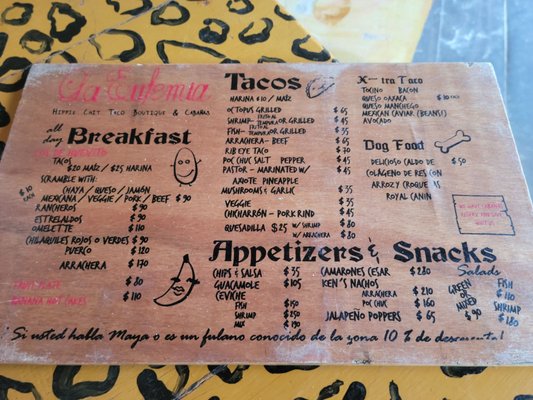 La Eufemia
Hippie Chit Taco Boutique & Cabanas
all day Breakfast
TACOS
$20 MAIZ / $25 HARINA
SCRAMBLE WITH:
CHAYA / QUESO / JAMÓN
MEXICANA / VEGGIE / PORK / BEEF $90
$10 EACH
RANCHEROS $90
ESTRELLADOS $90
OMELETTE $110
CHILAQUILES ROJOS O VERDES $90
PUERCO $120
ARRACHERA $170
FRUIT PLATE $80
BANANA HOT CAKES $110
Tacos
HARINA $10 / MAIZ
OCTOPUS GRILLED $65
SHRIMP- TRITO AL TEMPURA OR GRILLED $45
FISH- TRITO AL TEMPURA OR GRILLED $35
ARRACHERA- BEEF $65
RIB EYE TACO $70
POC CHUC SALT PEPPER $45
PASTOR - MARINATED W/ $45
AXIOTE PINEAPPLE
MUSHROOMS & GARLIC $35
VEGGIE $35
CHICHARRÓN - PORK RIND $45
QUESADILLA $25 W/ SHRIMP $80
W/ ARRACHERA $80
X-tra Taco
TOCINO BACON
QUESO OAXACA $10 EACH
QUESO MANCHEGO
MEXICAN CAVIAR (BEANS)
AVOCADO
Dog Food
DELICIOSO CALDO DE $50
COLÁGENO DE RES CON
ARROZ Y CROQUETAS
ROYAL CANIN
WE HAVE CABANAS
Appetizers & Snacks
CHIPS & SALSA $35
GUACAMOLE $105
CEVICHE
FISH $150
SHRIMP $250
MIX $190
CAMARONES CESAR $280
KEN'S NACHOS
ARRACHERA $210
POC CHUC $160
JALAPEÑO POPPERS $65
Salads
GREEN OR MIXED $90
FISH $110
SHRIMP $180
Si usted habla Maya o es un fulano conocido de la zona 10 % de descuento!